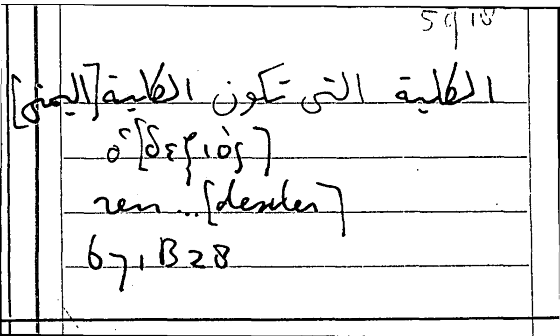 5918
الكلية التى تكون الكلية [اليمنى]
ὁ [δεξιὸς]
ren .. [dexter]
671B28